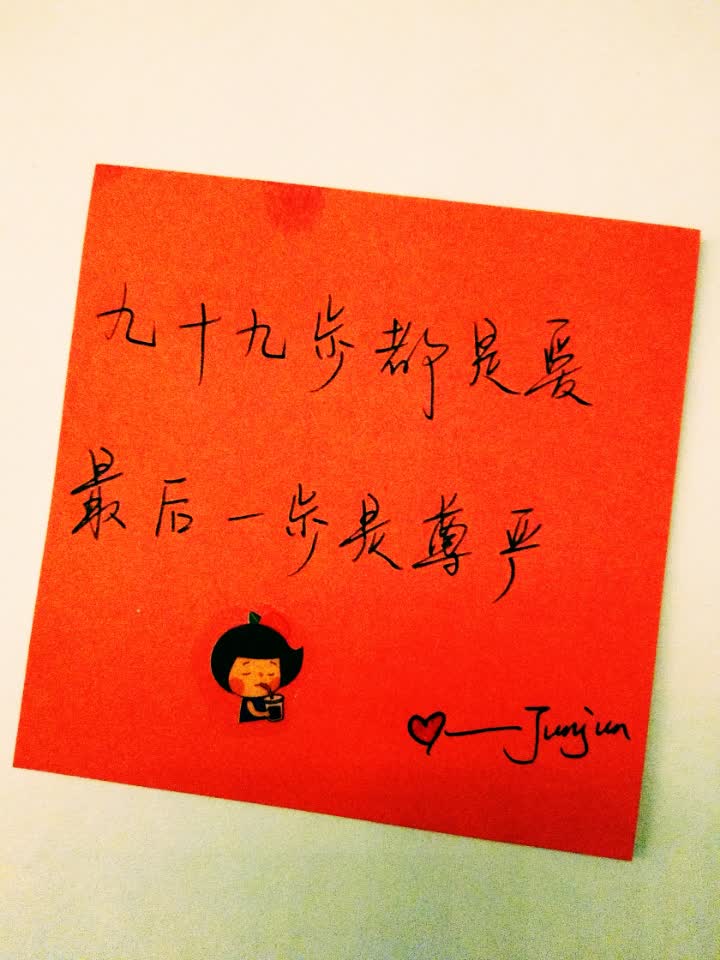 九十九步都是爱
最后一步是尊严
♡——Junjun